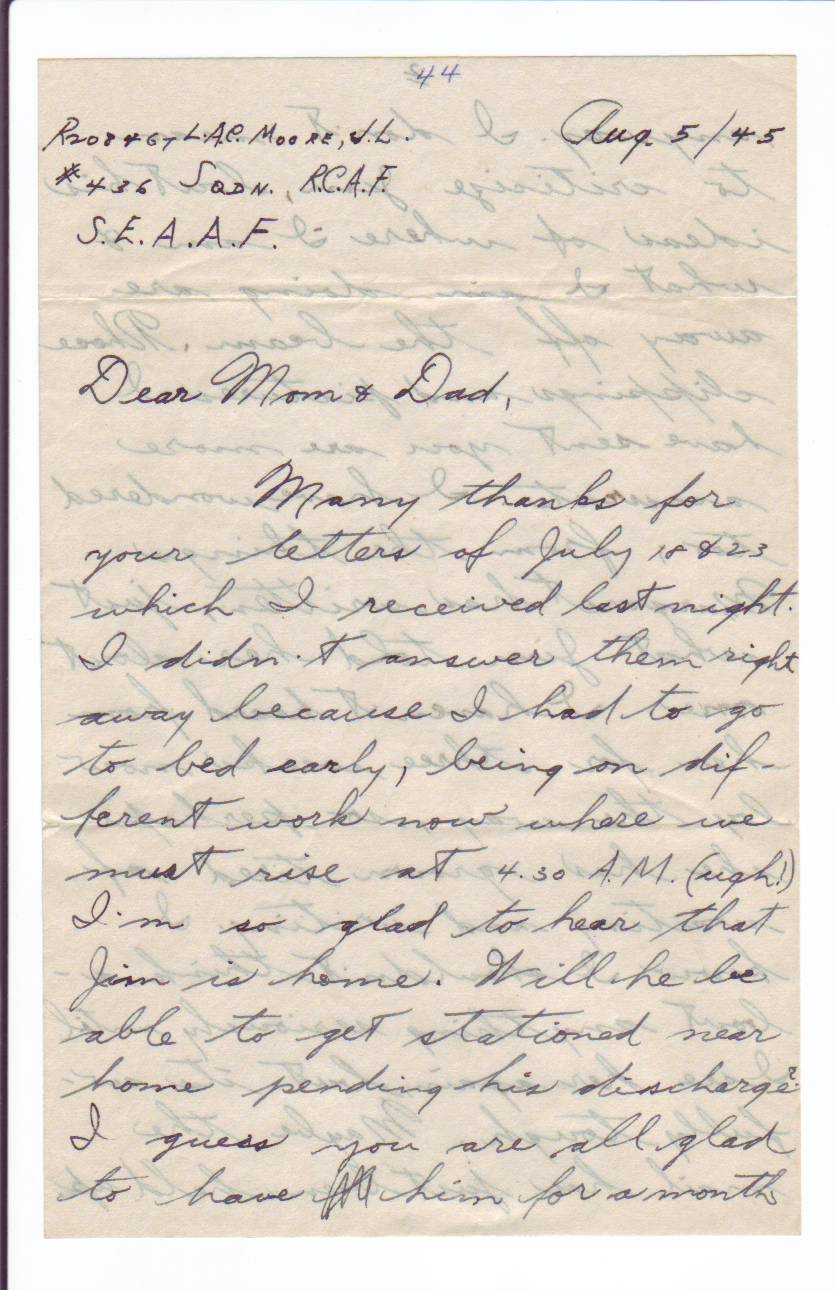 44
R208467 L.A.C. MOORE, J.L. Aug. 5/45
#436 SQDN. R.C.A.F.
S.E.A.A.F.
Dear Mom & Dad,
Many thanks for
your letters of July 18 & 23
which I received last night.
I didn't answer them right
away because I had to go
to bed early, being on dif-
ferent work now where we
must rise at 4.30 A.M. (ugh!)
I'm so glad to hear that
Jim is home. Will he be
able to get stationed near
home pending his discharge?
I guess you are all glad
to have him for a month